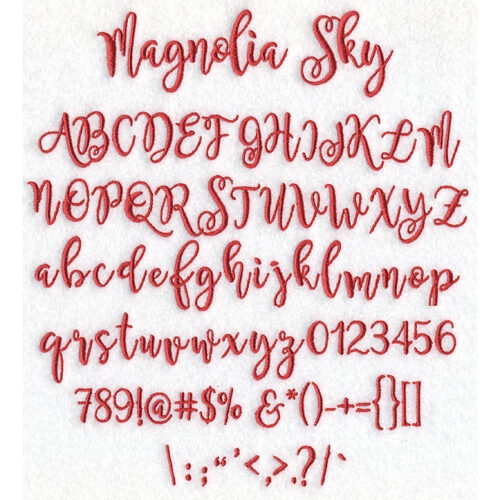 Magnolia Sky
ABCDEFGHIJKLM
NOPQRSTUVWXYZ
abcdefghijklmnop
qrstuvwxyz0123456
789!@#$% &*()-+={}[]
\:;“’<,>.?/`